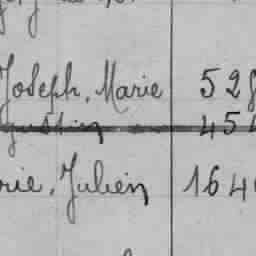 Joseph, Marie 528
454
rie, Julien 164